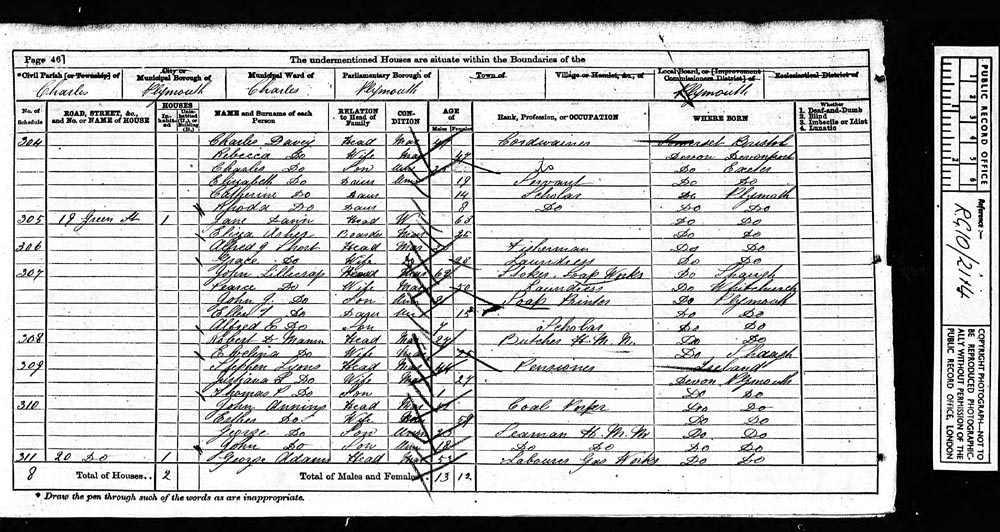 Page 46]
The undermentioned Houses are situate within the Boundaries of the
*Civil Parish [or Township] of
City or
Municipal Borough of
Municipal Ward of
Parliamentary Borough of
Town of
Village or Hamlet, &c., of
Local Board, or [Improvement
Commissioners District] of
Ecclesiastical District of
Charles
Plymouth
Charles
Plymouth
Plymouth
No. of
Schedule
ROAD, STREET, &c.,
and No. or NAME of HOUSE
HOUSES
In-
habit-
ed
Unin-
habited
(U.), or
Building
(B.)
NAME and Surname of each
Person
RELATION
to Head of
Family
CON-
DITION
AGE
of
Males
Females
Rank, Profession, or OCCUPATION
WHERE BORN
Whether
1. Deaf-and-Dumb
2. Blind
3. Imbecile or Idiot
4. Lunatic
304 Charles Davey Head Mar Cordwainer Somerset Bristol
Rebecca Do Wife Mar 47 Devon Devonport
Charles Do Son Do Do Exeter
Elizabeth Do Daur 19 Servant Do Do
Catherine Do Daur 14 Scholar Do Plymouth
Rhoda Do Daur 8 Do Do Do
305 19 Green St 1 Jane Head W 63 Do Do
Eliza Boarder Mar 25 Do Do
306 Alfred J Short Head Mar Fisherman Do Do
Grace Do Wife Do 28 Laundress Do Do
307 John Lillicrap Head Mar 62 Stoker Soap Works Do Shaugh
Pearce Do Wife Mar 50 Laundress Do Whitchurch
John J. Do Son Soap Do Plymouth
Ellen Do Daur Un 15 Do Do
Alfred E Do Son 7 Scholar Do Do
308 Robert D Mann Head Mar 27 Butcher H.M.N. Do Do
Do Wife Mar Do Shaugh
309 Stephen Lyons Head Mar 44 Pensioner Ireland
Do Wife Mar 27 Devon Plymouth
Thomas P Do Son 1 Do Do
310 John Annins Head Mar Coal Porter Do Do
Esther Do Wife 58 Do Do
George Do Son Unm 20 Seaman H.M.N. Do Do
John Do Son Un 18 Do Do Do Do
311 20 Do 1 George Adams Head Mar 52 Labourer Gas Works Do Do
8 Total of Houses.. 2 Total of Males and Females.. 13 12
* Draw the pen through such of the words as are inappropriate.
PUBLIC RECORD OFFICE
1 2 3 4 5 6
1 2
Reference :-
RG 10/2114
COPYRIGHT PHOTOGRAPH—NOT TO
BE REPRODUCED PHOTOGRAPHIC-
ALLY WITHOUT PERMISSION OF THE
PUBLIC RECORD OFFICE, LONDON